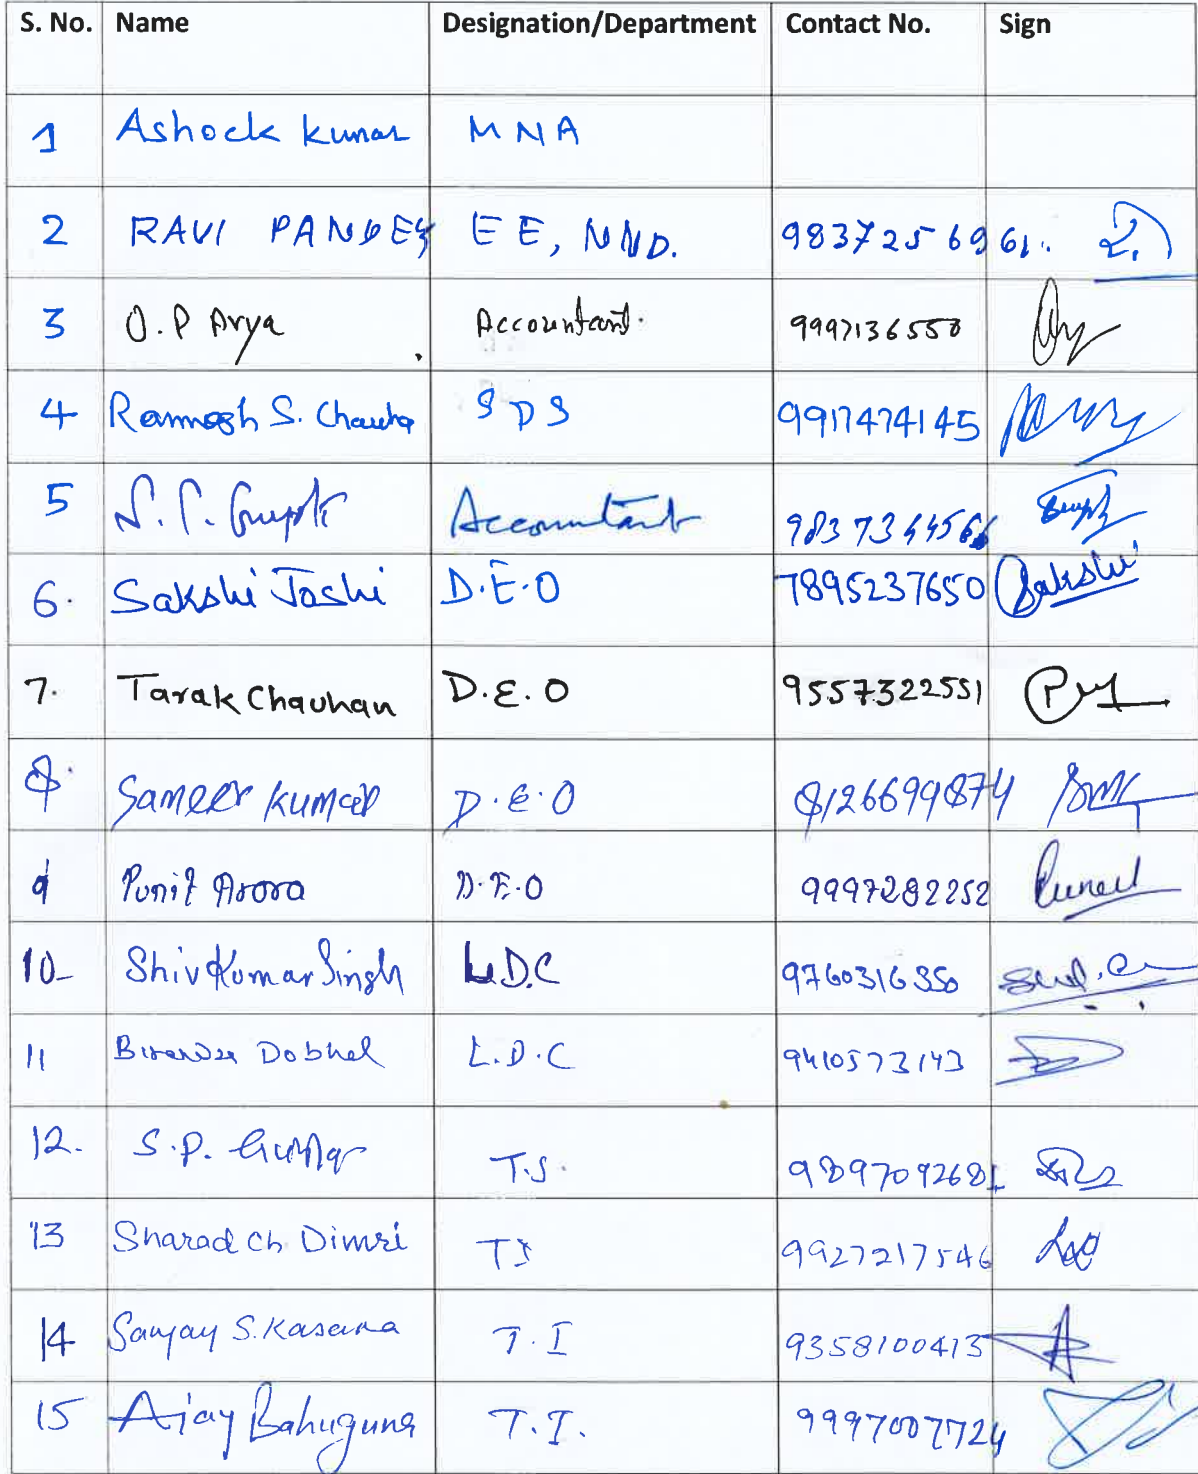 S. No. Name Designation/Department Contact No. Sign
1 Ashock kumar MNA
2 RAVI PANDEY EE, NND. 9837256961.
3 O.P Arya Accountant. 9997136550
4 Ramesh S. Chauha SDS 9917474145
5 S.P. Gupta Accountant Gupta
6. Sakshi Joshi D.E.O 7895237650 Sakshi
7. Tarak Chauhan D.E.O 9557322551
8. Sameer Kumar D.E.O 8126699874
9 Punit Arora D.E.O 9997282252 Puneet
10- Shiv Kumar Singh L.D.C 9760316350
11 Dobhal L.D.C 9410573143
12. S.P. T.S. 9897092681
13 Sharad Ch Dimri TI 9927217546
14 Sanjay S. Kasana T.I 9358100413
15 Ajay Bahuguna T.I. 9997007724